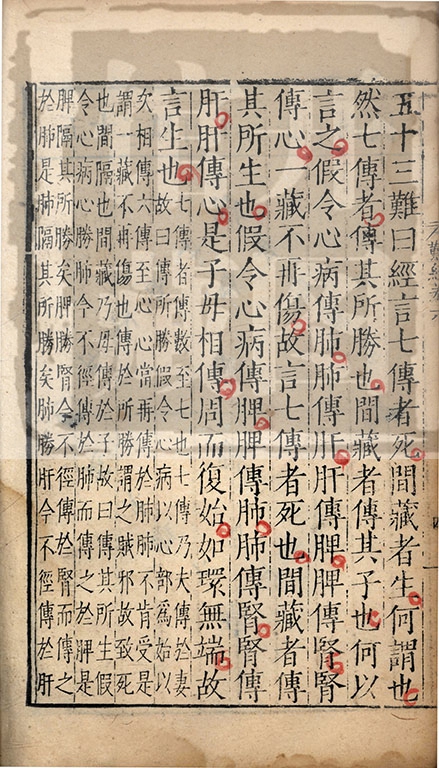 五十三難曰經言七傳者死間藏者生何謂也
然七傳者傳其所勝也間藏者傳其子也何以
言之假令心病傳肺肺傳肝肝傳脾脾傳腎腎
傳心一藏不再傷故言七傳者死也間藏者傳
其所生也假令心病傳脾脾傳肺肺傳腎腎傳
肝肝傳心是子母相傳周而復始如環無端故
言生也
七傳者傳數至七也七傳乃夫傳於妻
故曰傳所勝假令心病以心部爲始以
次相傳六傳至心心當再傳於肺肺不肯受是
謂一藏不再傷也傳於所勝謂之賊邪故致死
也間隔也間藏乃母傳於子故曰傳其所生假
令心病心勝肺今不徑傳於肺而傳之於脾是
脾隔其所勝矣脾勝腎今不徑傳於腎而傳之
於肺是肺隔其所勝矣肺勝肝今不徑傳於肝